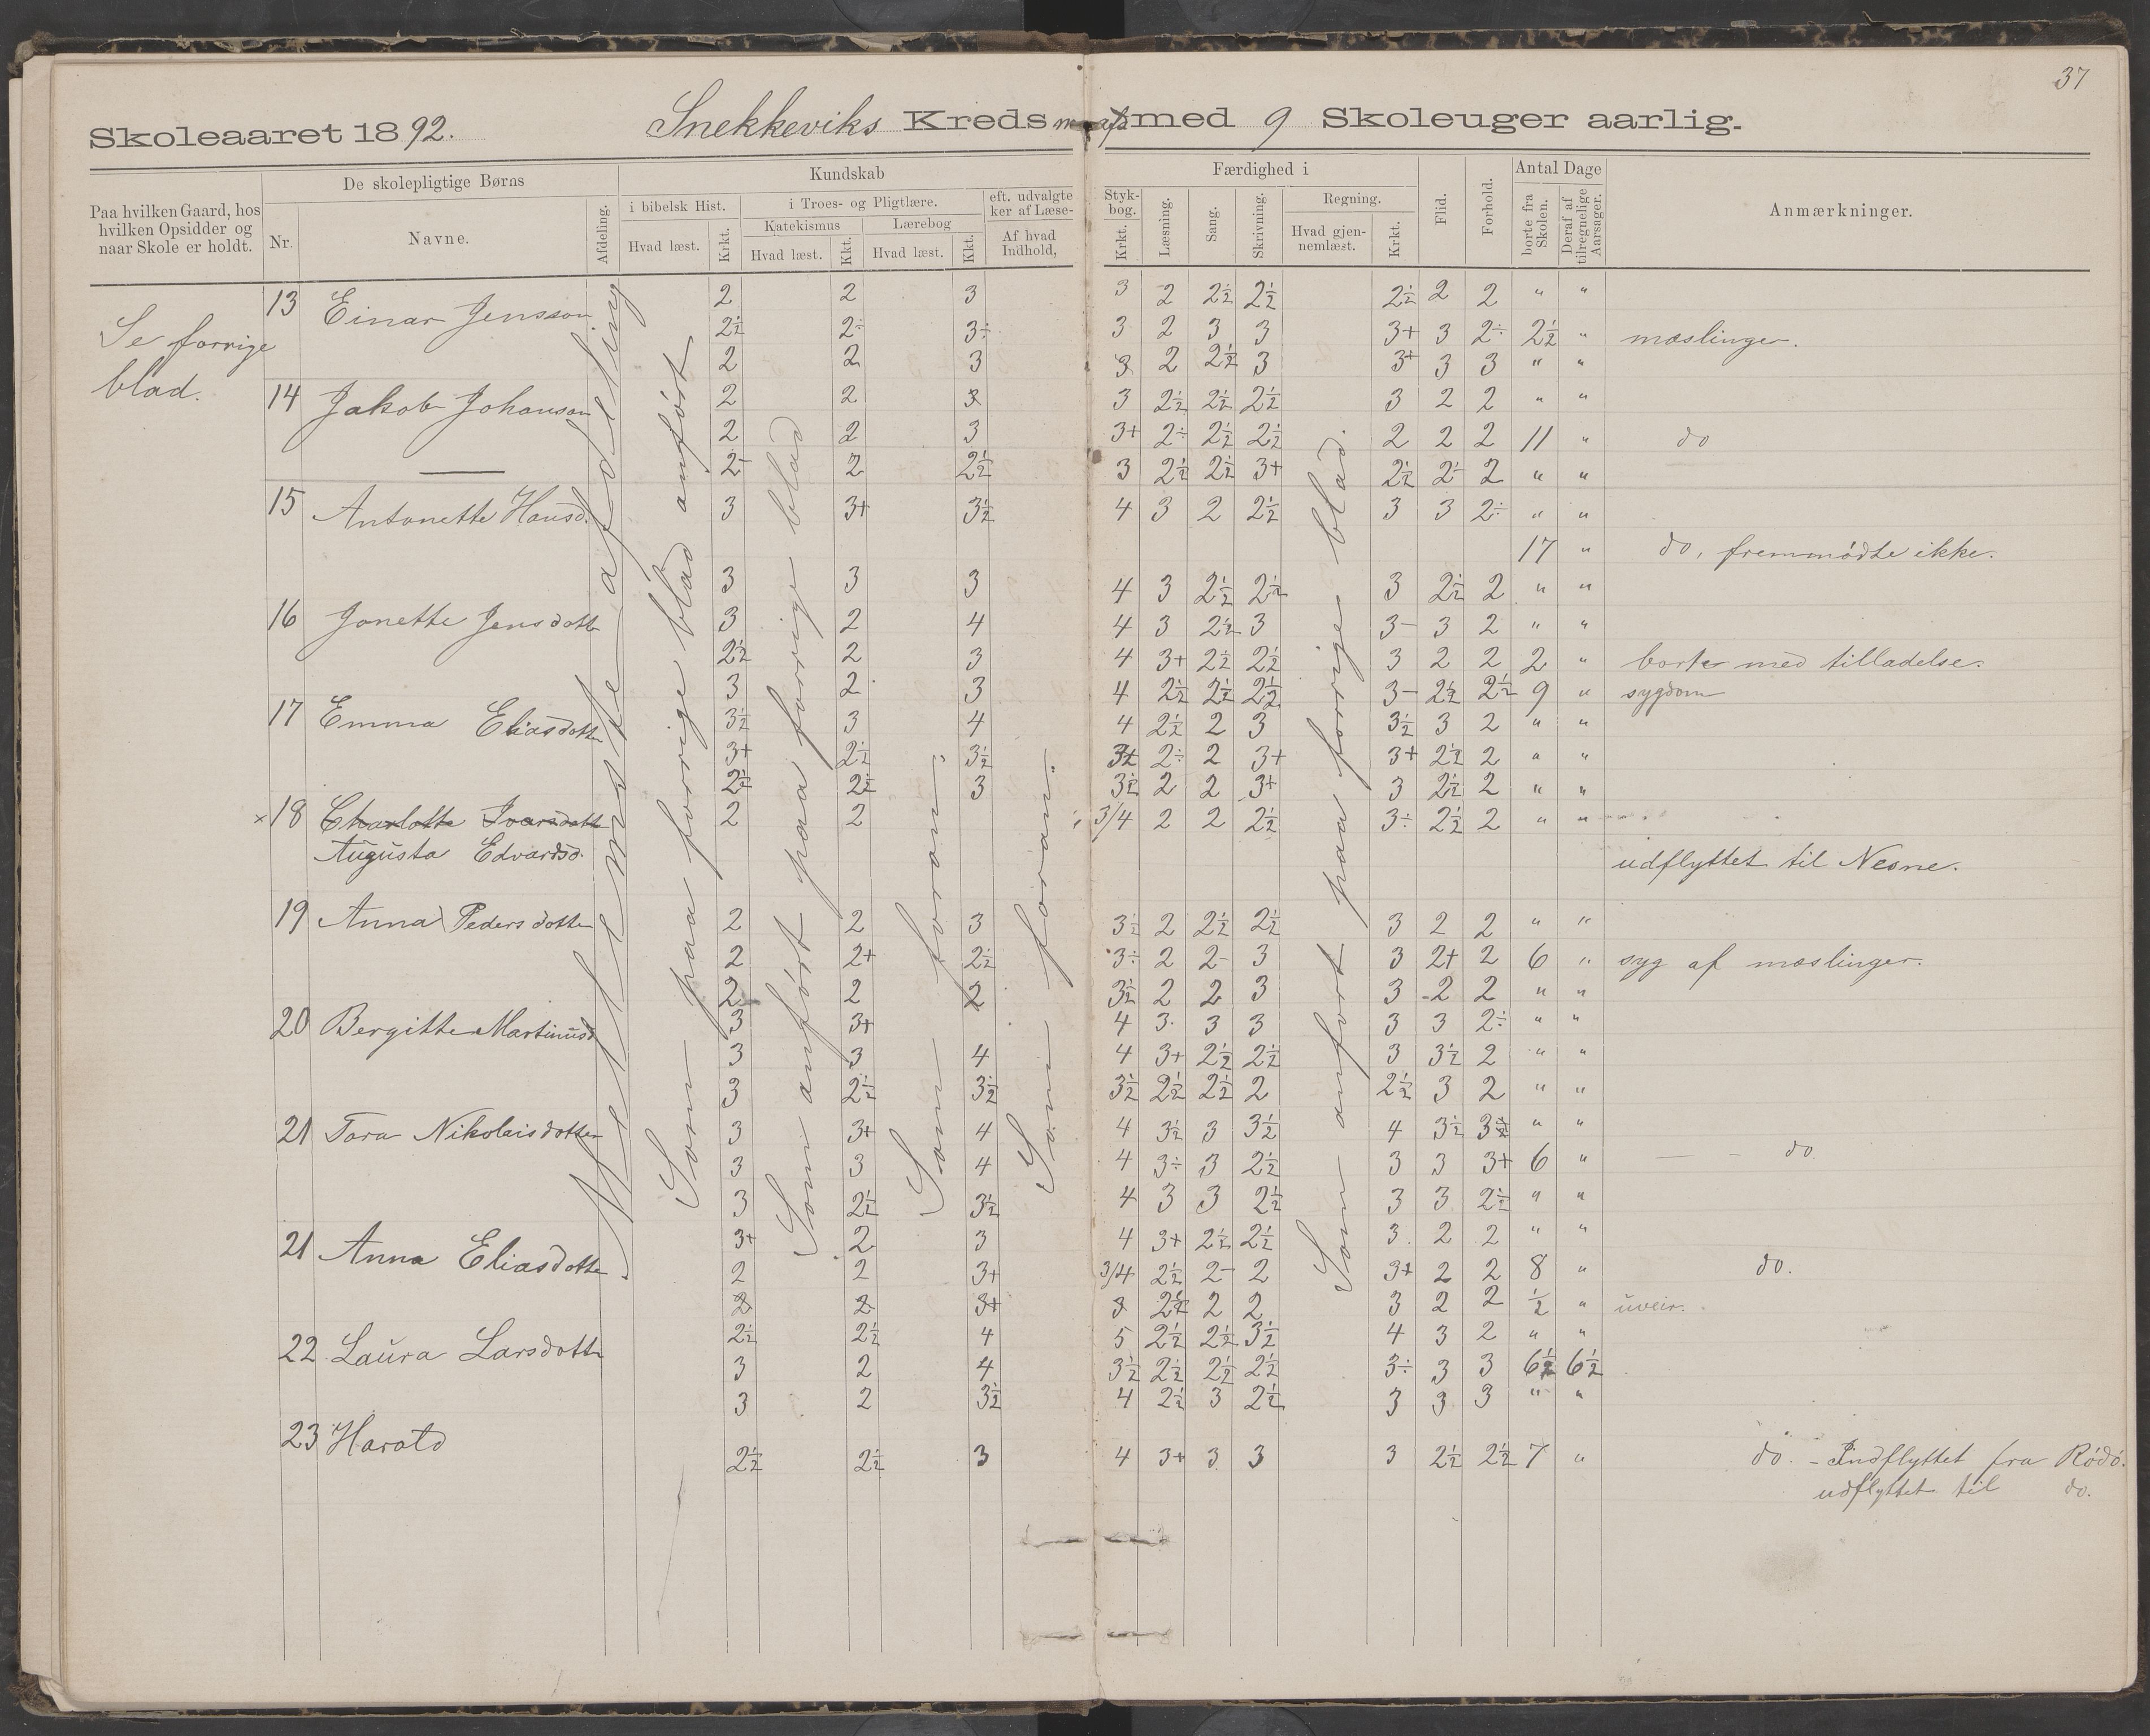 37
Skoleaaret 1892. Snekkeviks Kreds med 9 Skoleuger aarlig.
Paa hvilken Gaard, hos hvilken Opsidder og naar Skole er holdt.
De skolepligtige Børns
Nr. Navne. Afdeling.
Kundskab
i bibelsk Hist. Hvad læst. Krkt.
i Troes- og Pligtlære.
Katekismus Hvad læst. Kkt.
Lærebog Hvad læst. Kkt.
eft. udvalgte Styk-
ker af Læse- bog.
Af hvad Indhold, Krkt.
Færdighed i
Læsning. Sang. Skrivning.
Regning. Hvad gjen-nemlæst. Krkt.
Flid. Forhold.
Antal Dage
borte fra Skolen. Deraf af tilregnelige Aarsager.
Anmærkninger.
Se forrige
blad.
Mellemste afdeling
Som paa forrige blad anført
Som anført paa forrige blad
Som foran.
Som foran.
Som anført paa forrige blad.
13 Einar Jensson 2 2 3 3 2 2½ 2½ 2½ 2 2 " "
2½ 2÷ 3÷ 3 2 3 3 3+ 3 2÷ 2½ " mæslinger.
2 2 3 3 2 2½ 3 3+ 3 3 " "
14 Jakob Johanson 2 2 3 3 2½ 2½ 2½ 3 2 2 " "
2 2 3 3+ 2÷ 2½ 2½ 2 2 2 11 " do
2- 2 2½ 3 2½ 2½ 3+ 2½ 2- 2 " "
15 Antonette Hansd. 3 3+ 3½ 4 3 2 2½ 3 3 2÷ " "
17 " do, fremmødte ikke.
3 3 3 4 3 2½ 2½ 3 2½ 2 " "
16 Jonette Jensdott 3 2 4 4 3 2½ 3 3- 3 2 " "
2½ 2 3 4 3+ 2½ 2½ 3 2 2 2 " borte med tilladelse.
3 2 3 4 2½ 2½ 2½ 3- 2½ 2½ 9 " sygdom
17 Emma Eliasdotte 3½ 3 4 4 2½ 2 3 3½ 3 2 " "
3+ 2½ 3½ 3½ 2÷ 2 3+ 3+ 2½ 2 " "
2½ 2½ 3 3½ 2 2 3+ 3 2½ 2 " "
× 18 Charlotte Ivarsdatt 2 2 3/4 2 2 2½ 3÷ 2½ 2 " "
Augusta Edvardsd. udflyttet til Nesne.
19 Anna Pedersdotte 2 2 3 3½ 2 2½ 2½ 3 2 2 " "
2 2+ 2½ 3÷ 2 2- 3 3 2+ 2 6 " syg af mæslinger.
2 2 2 3½ 2 2 3 3 2 2 " "
20 Bergitte Martinusd 3 3+ 4 3 3 3 3 3 2÷ " "
3 3 4 4 3+ 2½ 2½ 3 3½ 2 " "
3 2½ 3½ 3½ 2½ 2½ 2 2½ 3 2 " "
21 Tora Nikolaisdotte 3 3+ 4 4 3½ 3 3½ 4 3½ 3½ " "
3 3 4 4 3÷ 3 2½ 3 3 3+ 6 " do
3 2½ 3½ 4 3 3 2½ 3 3 2½ " "
21 Anna Eliasdotte 3+ 2 3 4 3+ 2½ 2½ 3 2 2 " "
2 2 3+ 3/4 2½ 2- 2 3+ 2 2 8 " do.
2 2 3+ 3 2½ 2 2 3 2 2 ½ " uveir.
22 Laura Larsdotte 2½ 2½ 4 5 2½ 2½ 3½ 4 3 2 " "
3 2 4 3½ 2½ 2½ 2½ 3÷ 3 3 6½ 6½
3 2 3½ 4 2½ 3 2½ 3 3 3 " "
23 Harald
2½ 2½ 3 4 3+ 3 3 3 2½ 2½ 7 " do. - Indflyttet fra Rødø.
udflyttet til do.